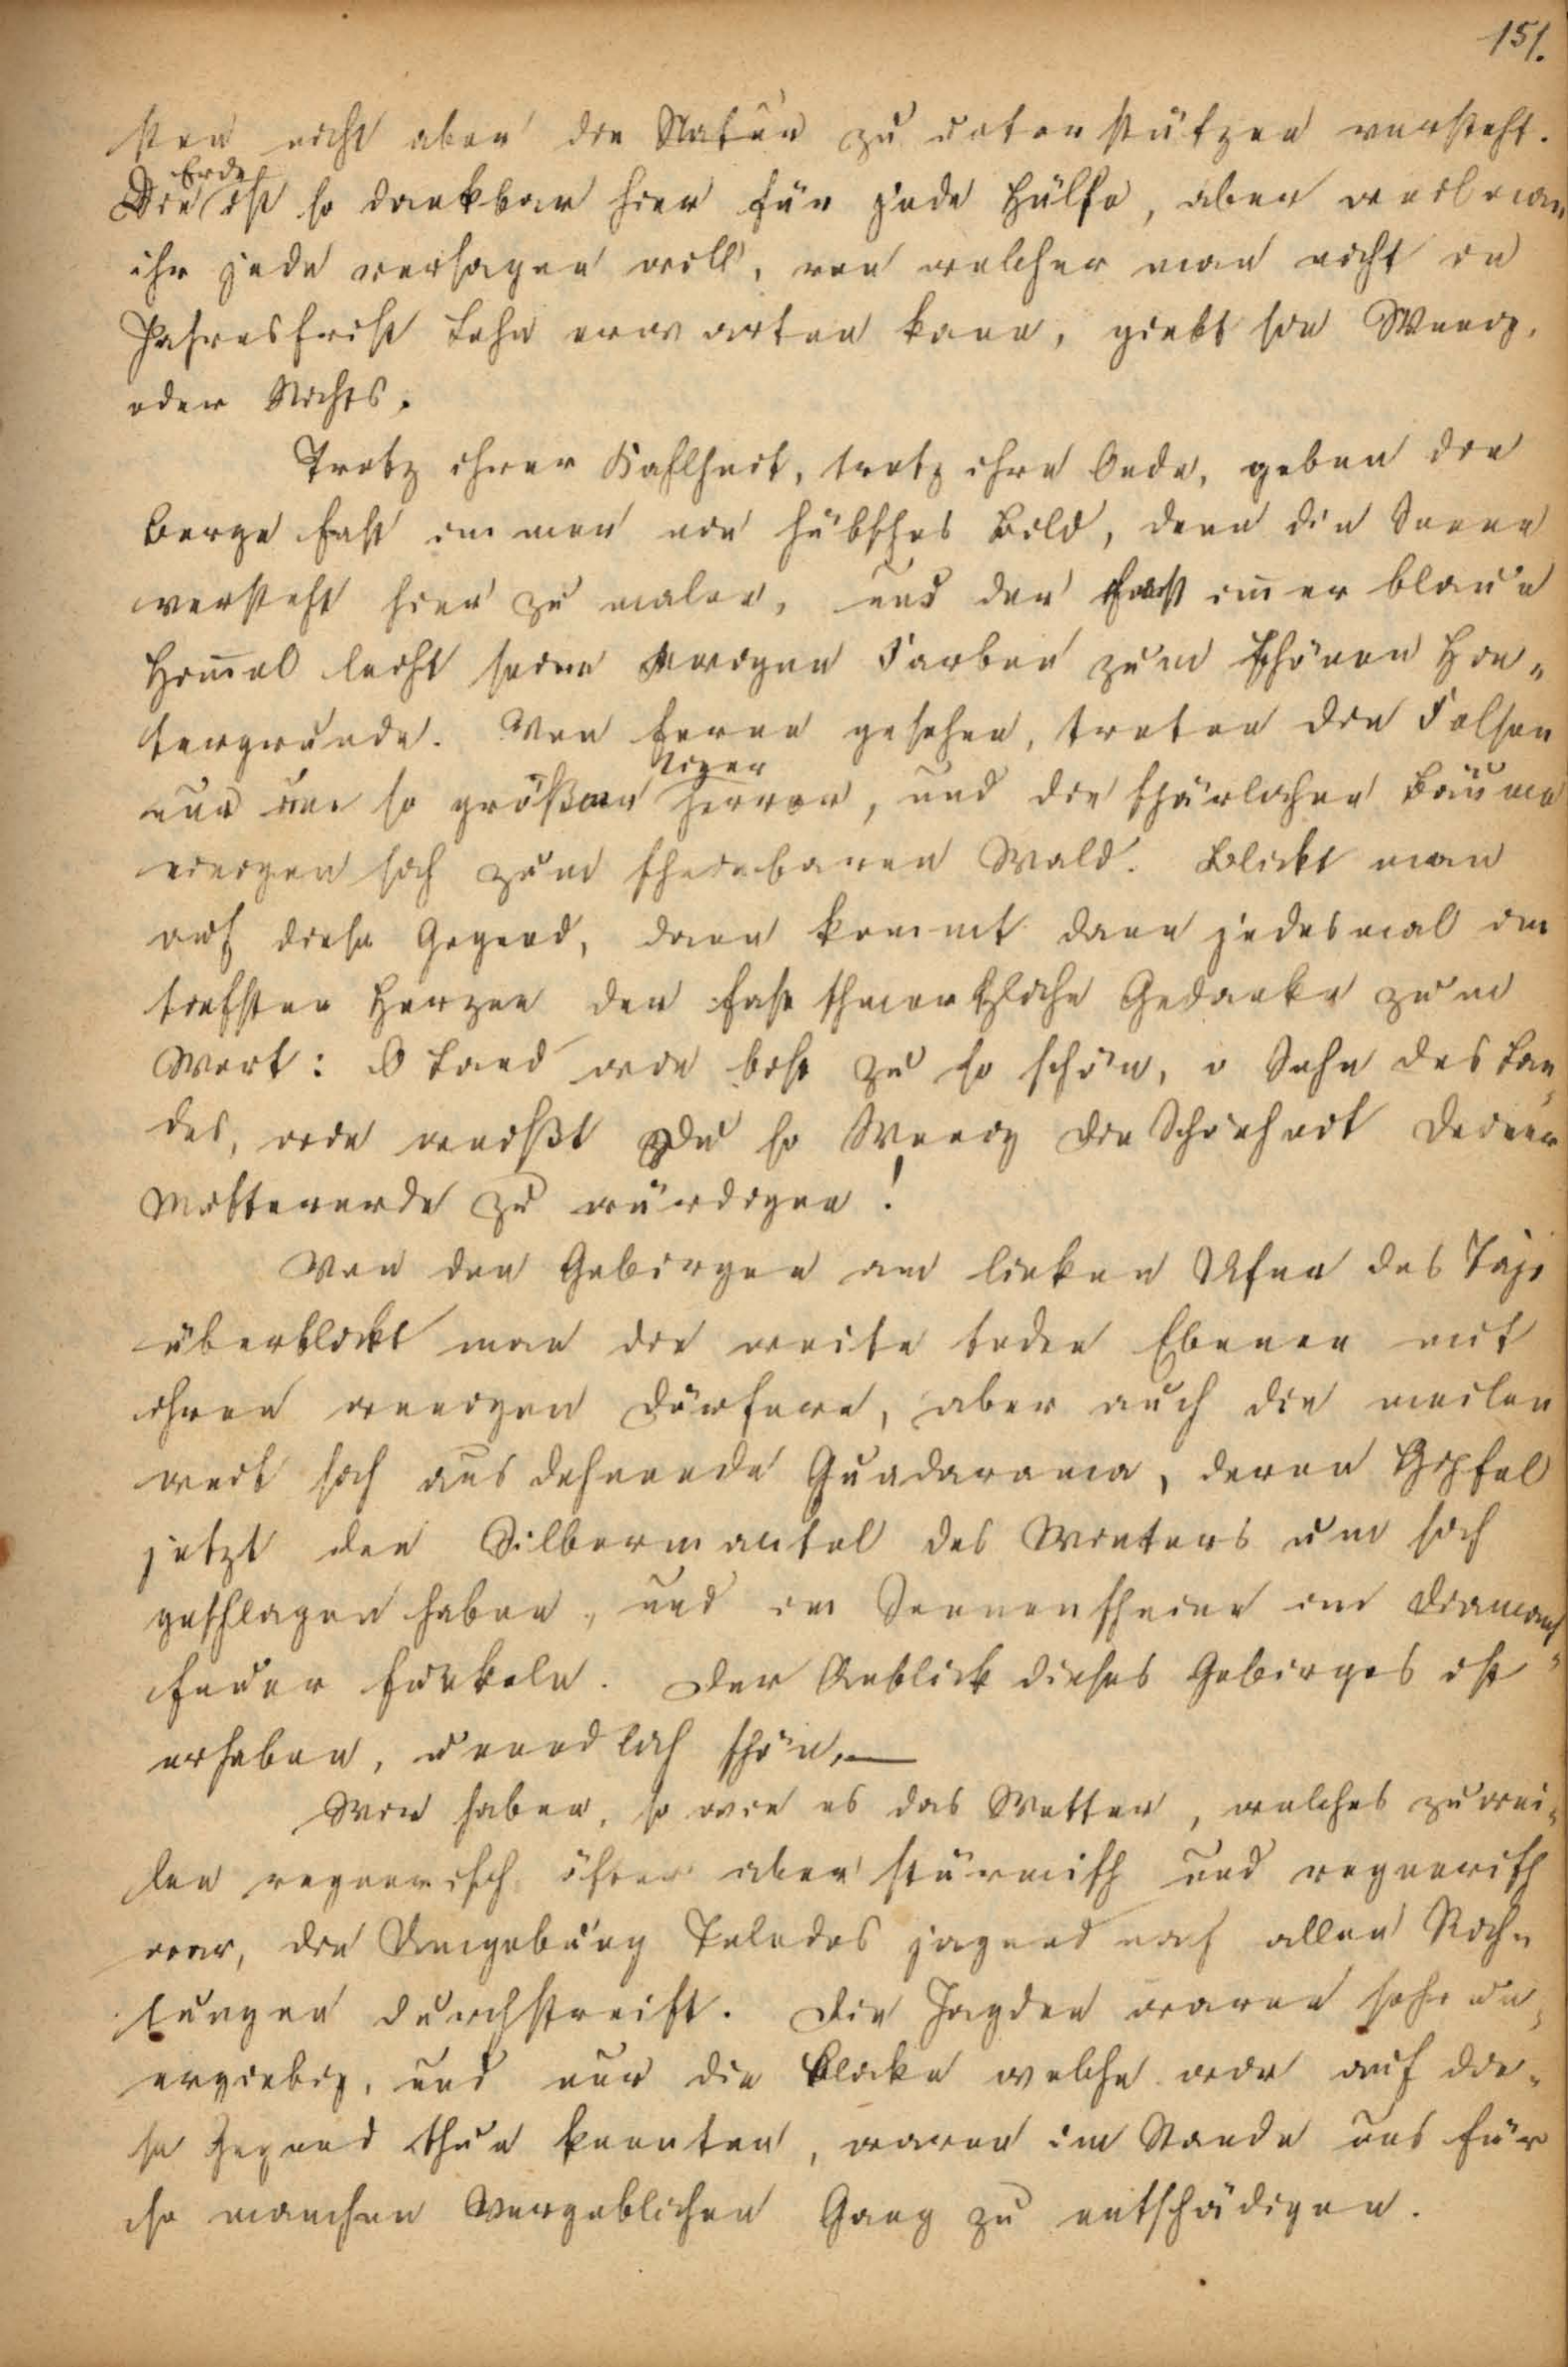 151.
sten nicht aber die Natur zu unterstützen versteht.
Erde
Die ist so dankbar hier für jede Hülfe, aber weil man
ihr jede versagen will, von welcher man nicht in
Jahresfrist Lohn erwarten kann, giebt sie Wenig,
oder Nichts.
Trotz ihrer Kahlheit, trotz ihre Oede, geben die
Berge fast immer ein hübsches Bild, denn die Sonne
versteht hier zu malen, und der fast im̅er blaue
Him̅el leiht seine ewigen Farben zum schönen Hin„
tergrunde. Von ferne gesehen, treten die Felsen
nur um so größer hervor, und die spärlichen Bäume
einigen sich zum scheinbaren Wald. Blickt man
auf diese Gegend, dann kommt dann jedesmal im
tiefsten Herzen der fast schmerzliche Gedanke zum
Wort: O Land wie bist zu so schön, o Sohn des Lan„
des, wie weißt Du so Wenig die Schönheit Deiner
Muttererde zu würdigen!
Von den Gebirgen am linken Ufer des Tajo
überblickt man die weite toden Ebenen mit
ihren wenigen Dörfern, aber auch die meilen
weit sich ausdehnende Guadarama, deren Gipfel
jetzt den Silbermantel des Winters um sich
geschlagen haben, und im Sonnenscheine im Diamant„
feuer funkeln. Der Anblick dieses Gebirges ist
erhaben, unendlich schön. —
Wir haben, so wie es das Wetter, welches zuwei„
len regnerisch öfter aber stürmisch und regnerisch
war, die Umgebung Toledos jagend nach allen Rich„
tungen durchstreift. Die Jagden waren sehr un„
ergiebig, und nur die Blicke welche wir auf die„
se Gegend thun konnten, waren im Stande uns für
so manchen Vergeblichen Gang zu entschädigen.